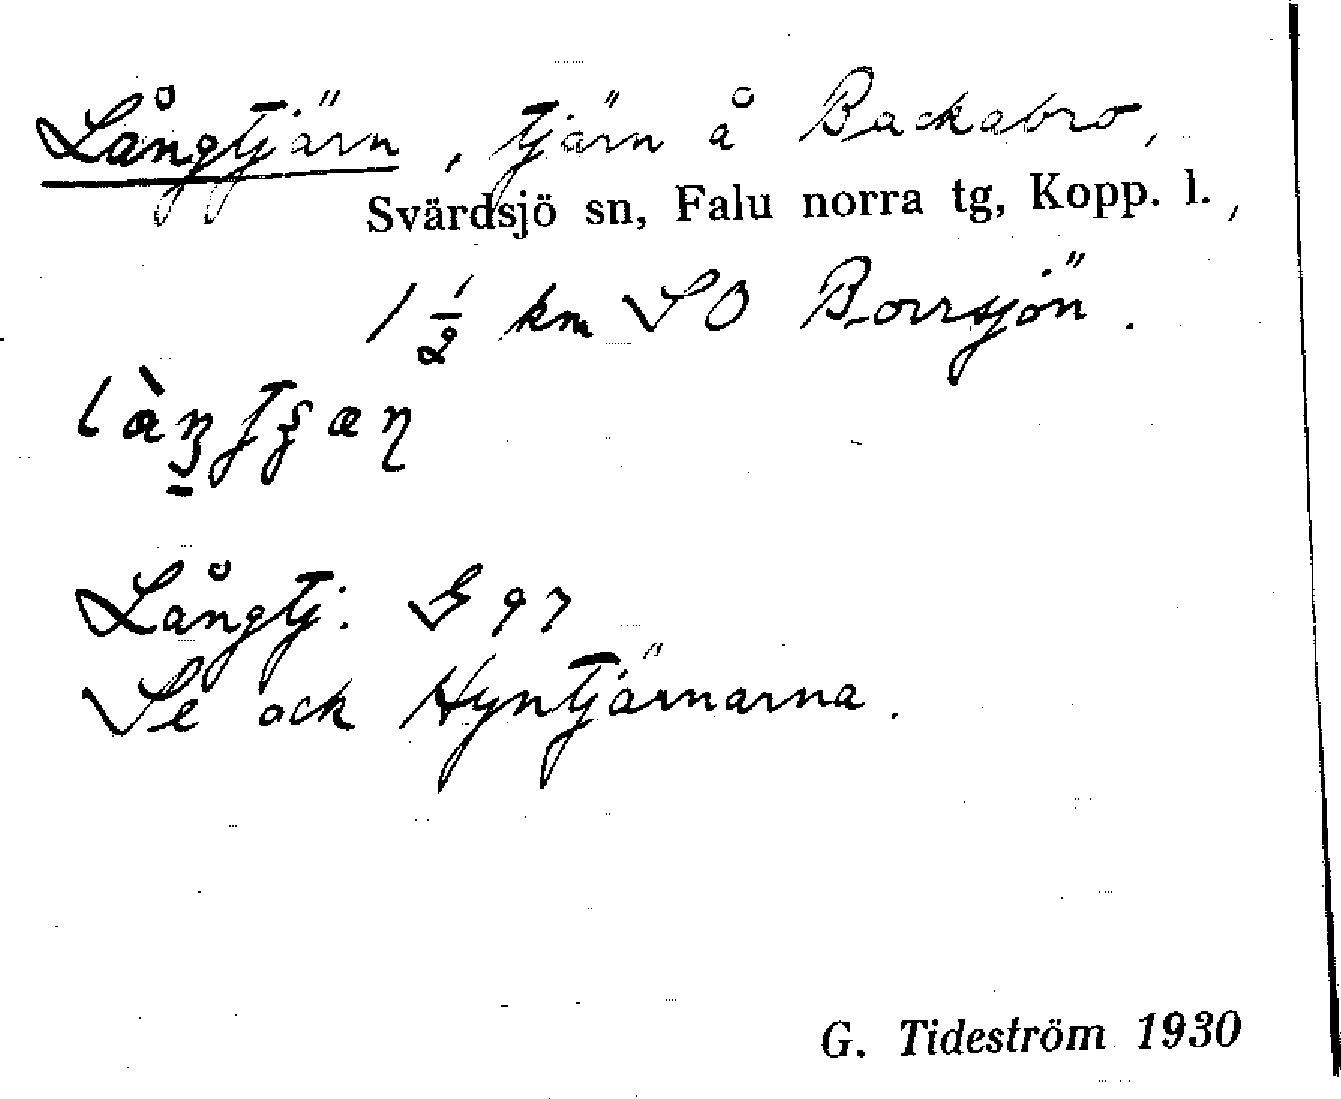 Långtjärn, tjärn å Backabro,
Svärdsjö sn, Falu norra tg, Kopp. l.,
1 1/2 km SO Borrsjön.
Långtj. G 97
Se ock Hyntjärnarna.
G. Tideström 1930